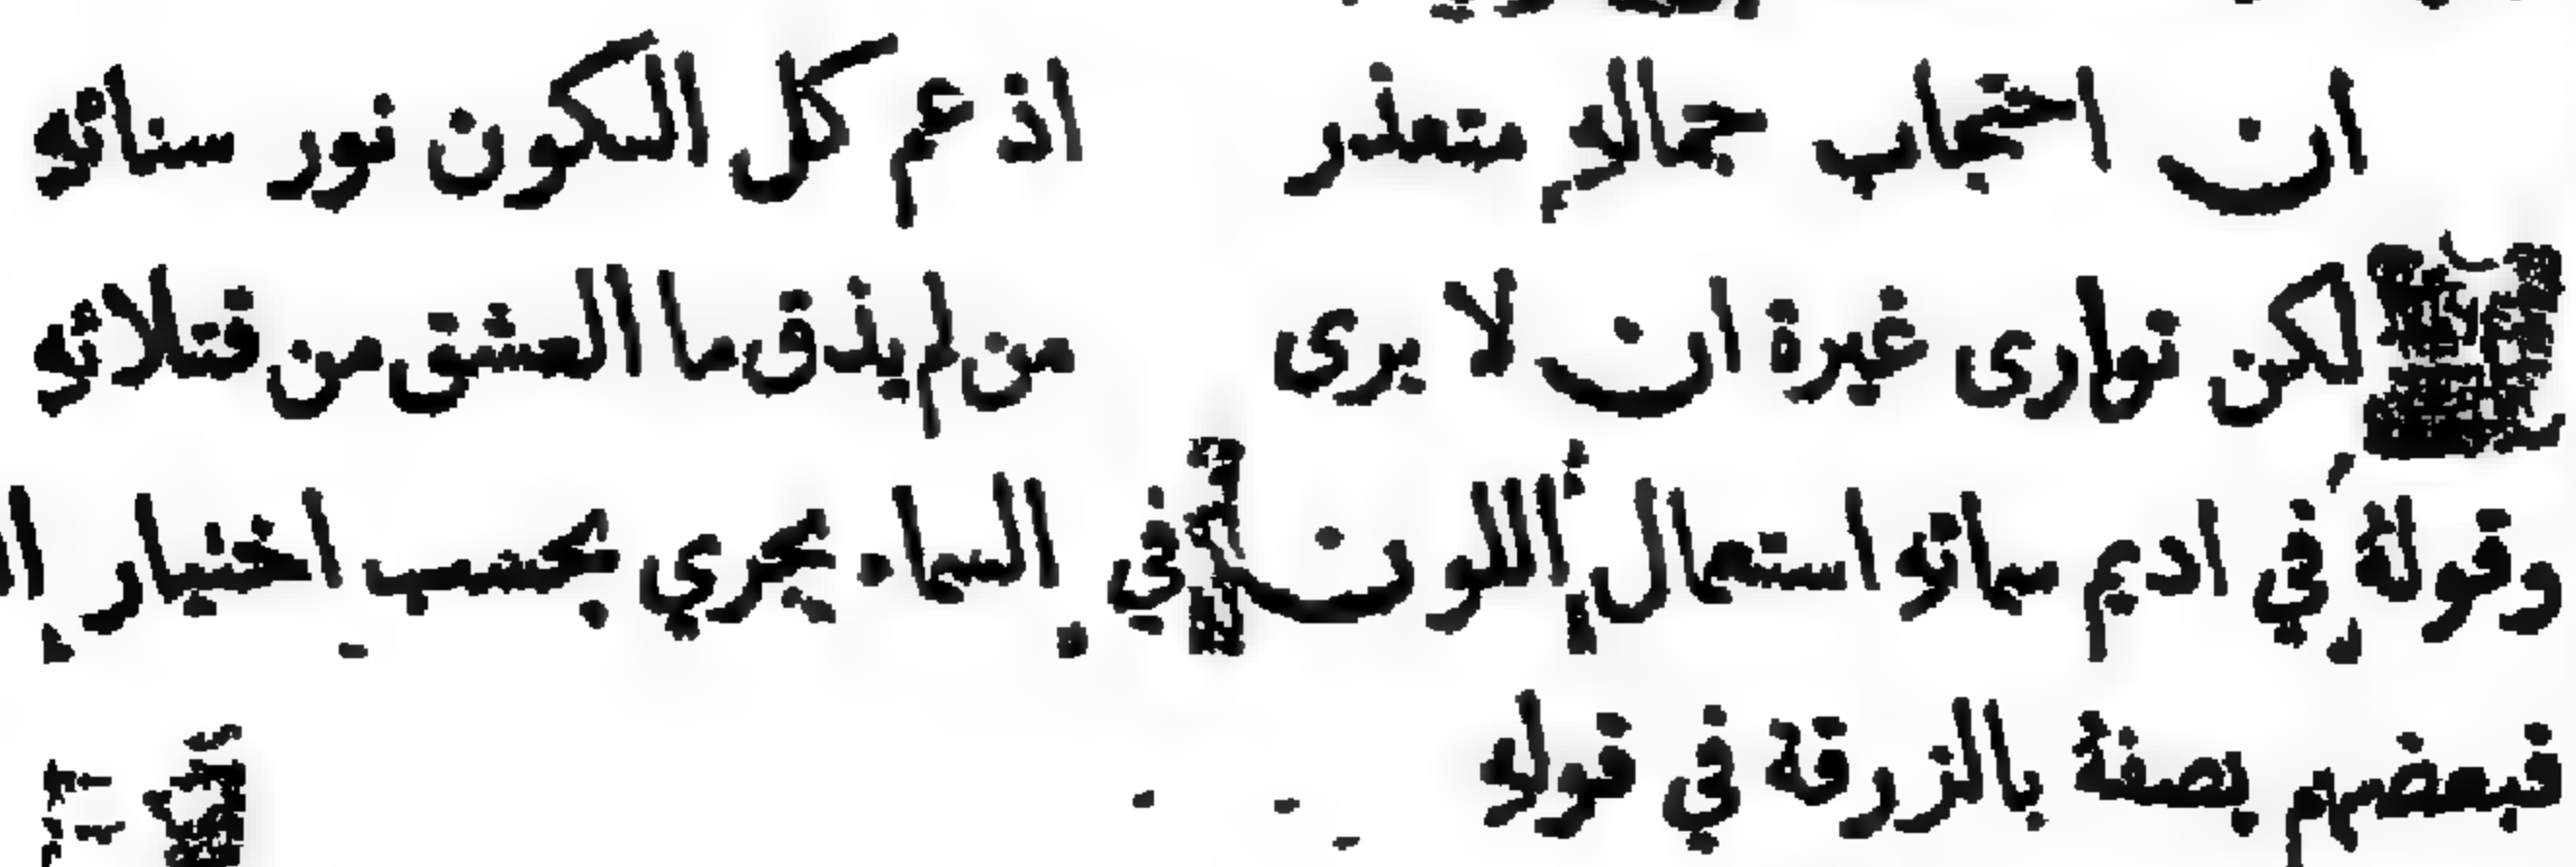 ان احتجاب جماله متعذر اذ عم كل الكون نور سنائه
لكن توارى غيرة ان لا يرى من لم يذق ما العشق من قتلائه
وقوله في اديم سمائه استعمال اللون في السماء يجري بحسب اختيار
فبعضهم يصفة بالزرقة في قوله